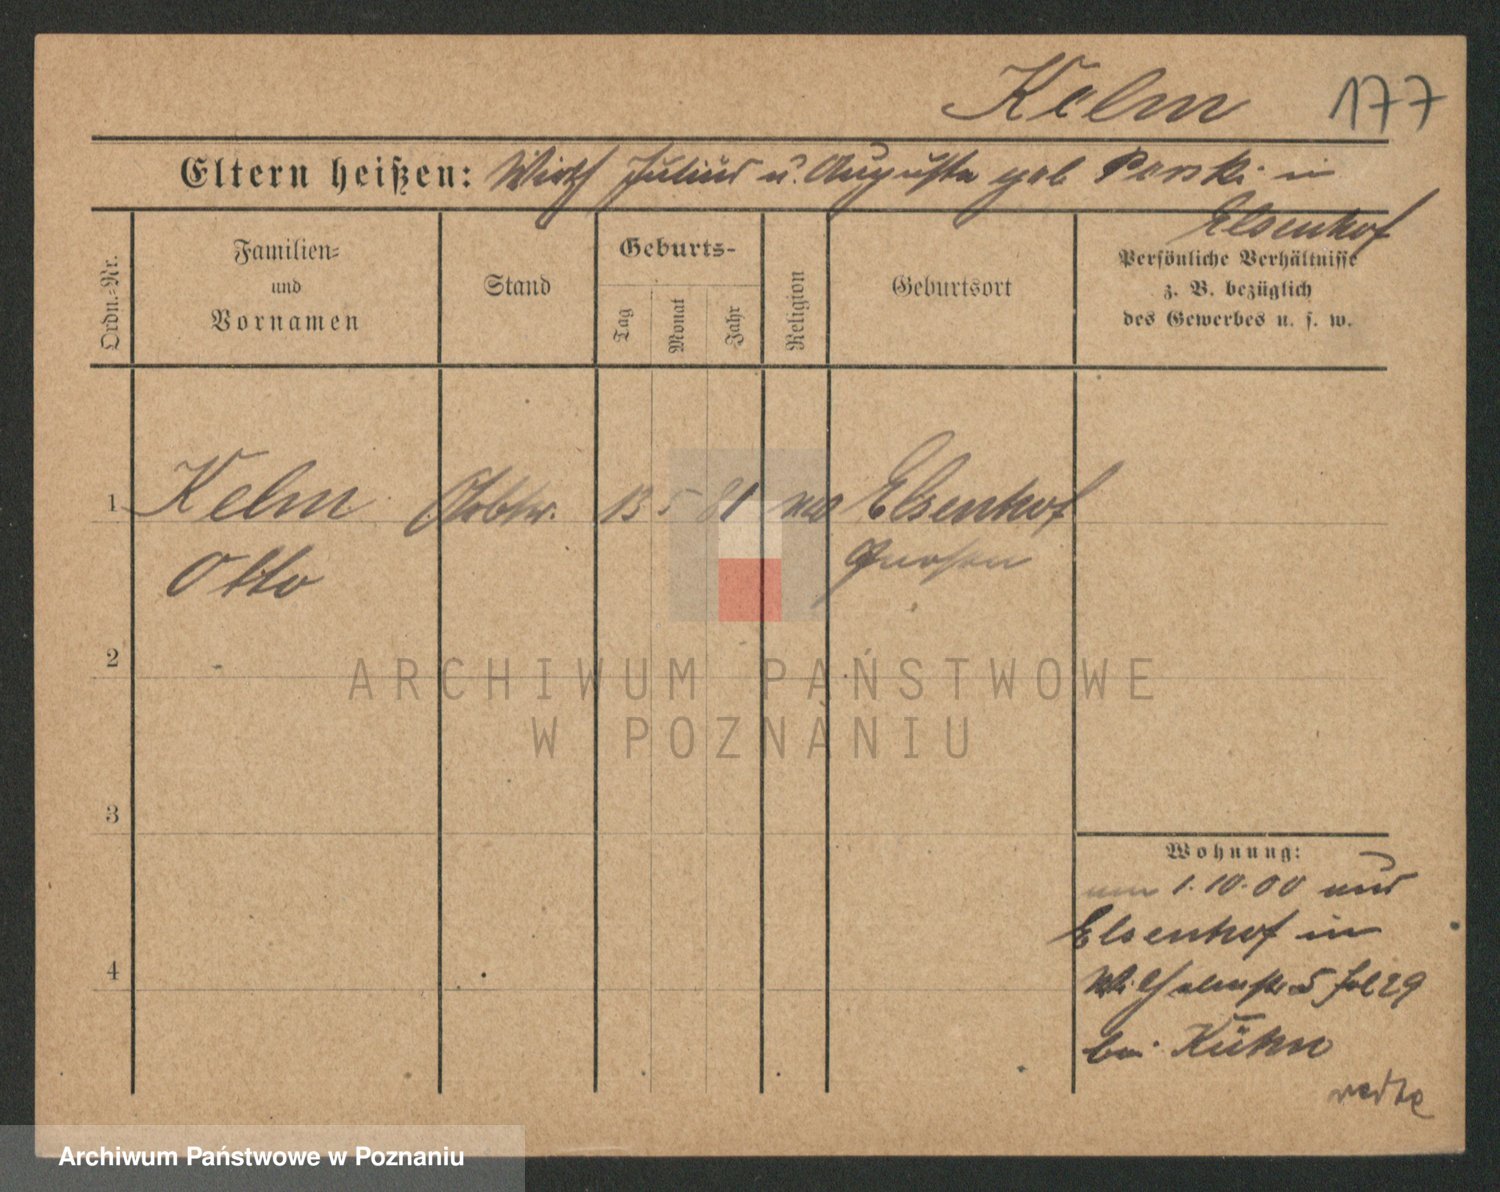 Kelm 177
Eltern heißen: Wirth Julius u. Augusta geb Perski in
Elsenhof
Ordn.-Nr.
Familien-
und
Vornamen
Stand
Geburts-
Tag
Monat
Jahr
Religion
Geburtsort
Persönliche Verhältnisse
z. B. bezüglich
des Gewerbes u. s. w.
1 Kelm 13 5 81 Elsenhof
Otto
2
3
4
Wohnung:
1.10.00 aus
Elsenhof in
Wilhelmstr 5 fol 29
bei Kühn
ARCHIWUM PAŃSTWOWE
W POZNANIU
Archiwum Państwowe w Poznaniu